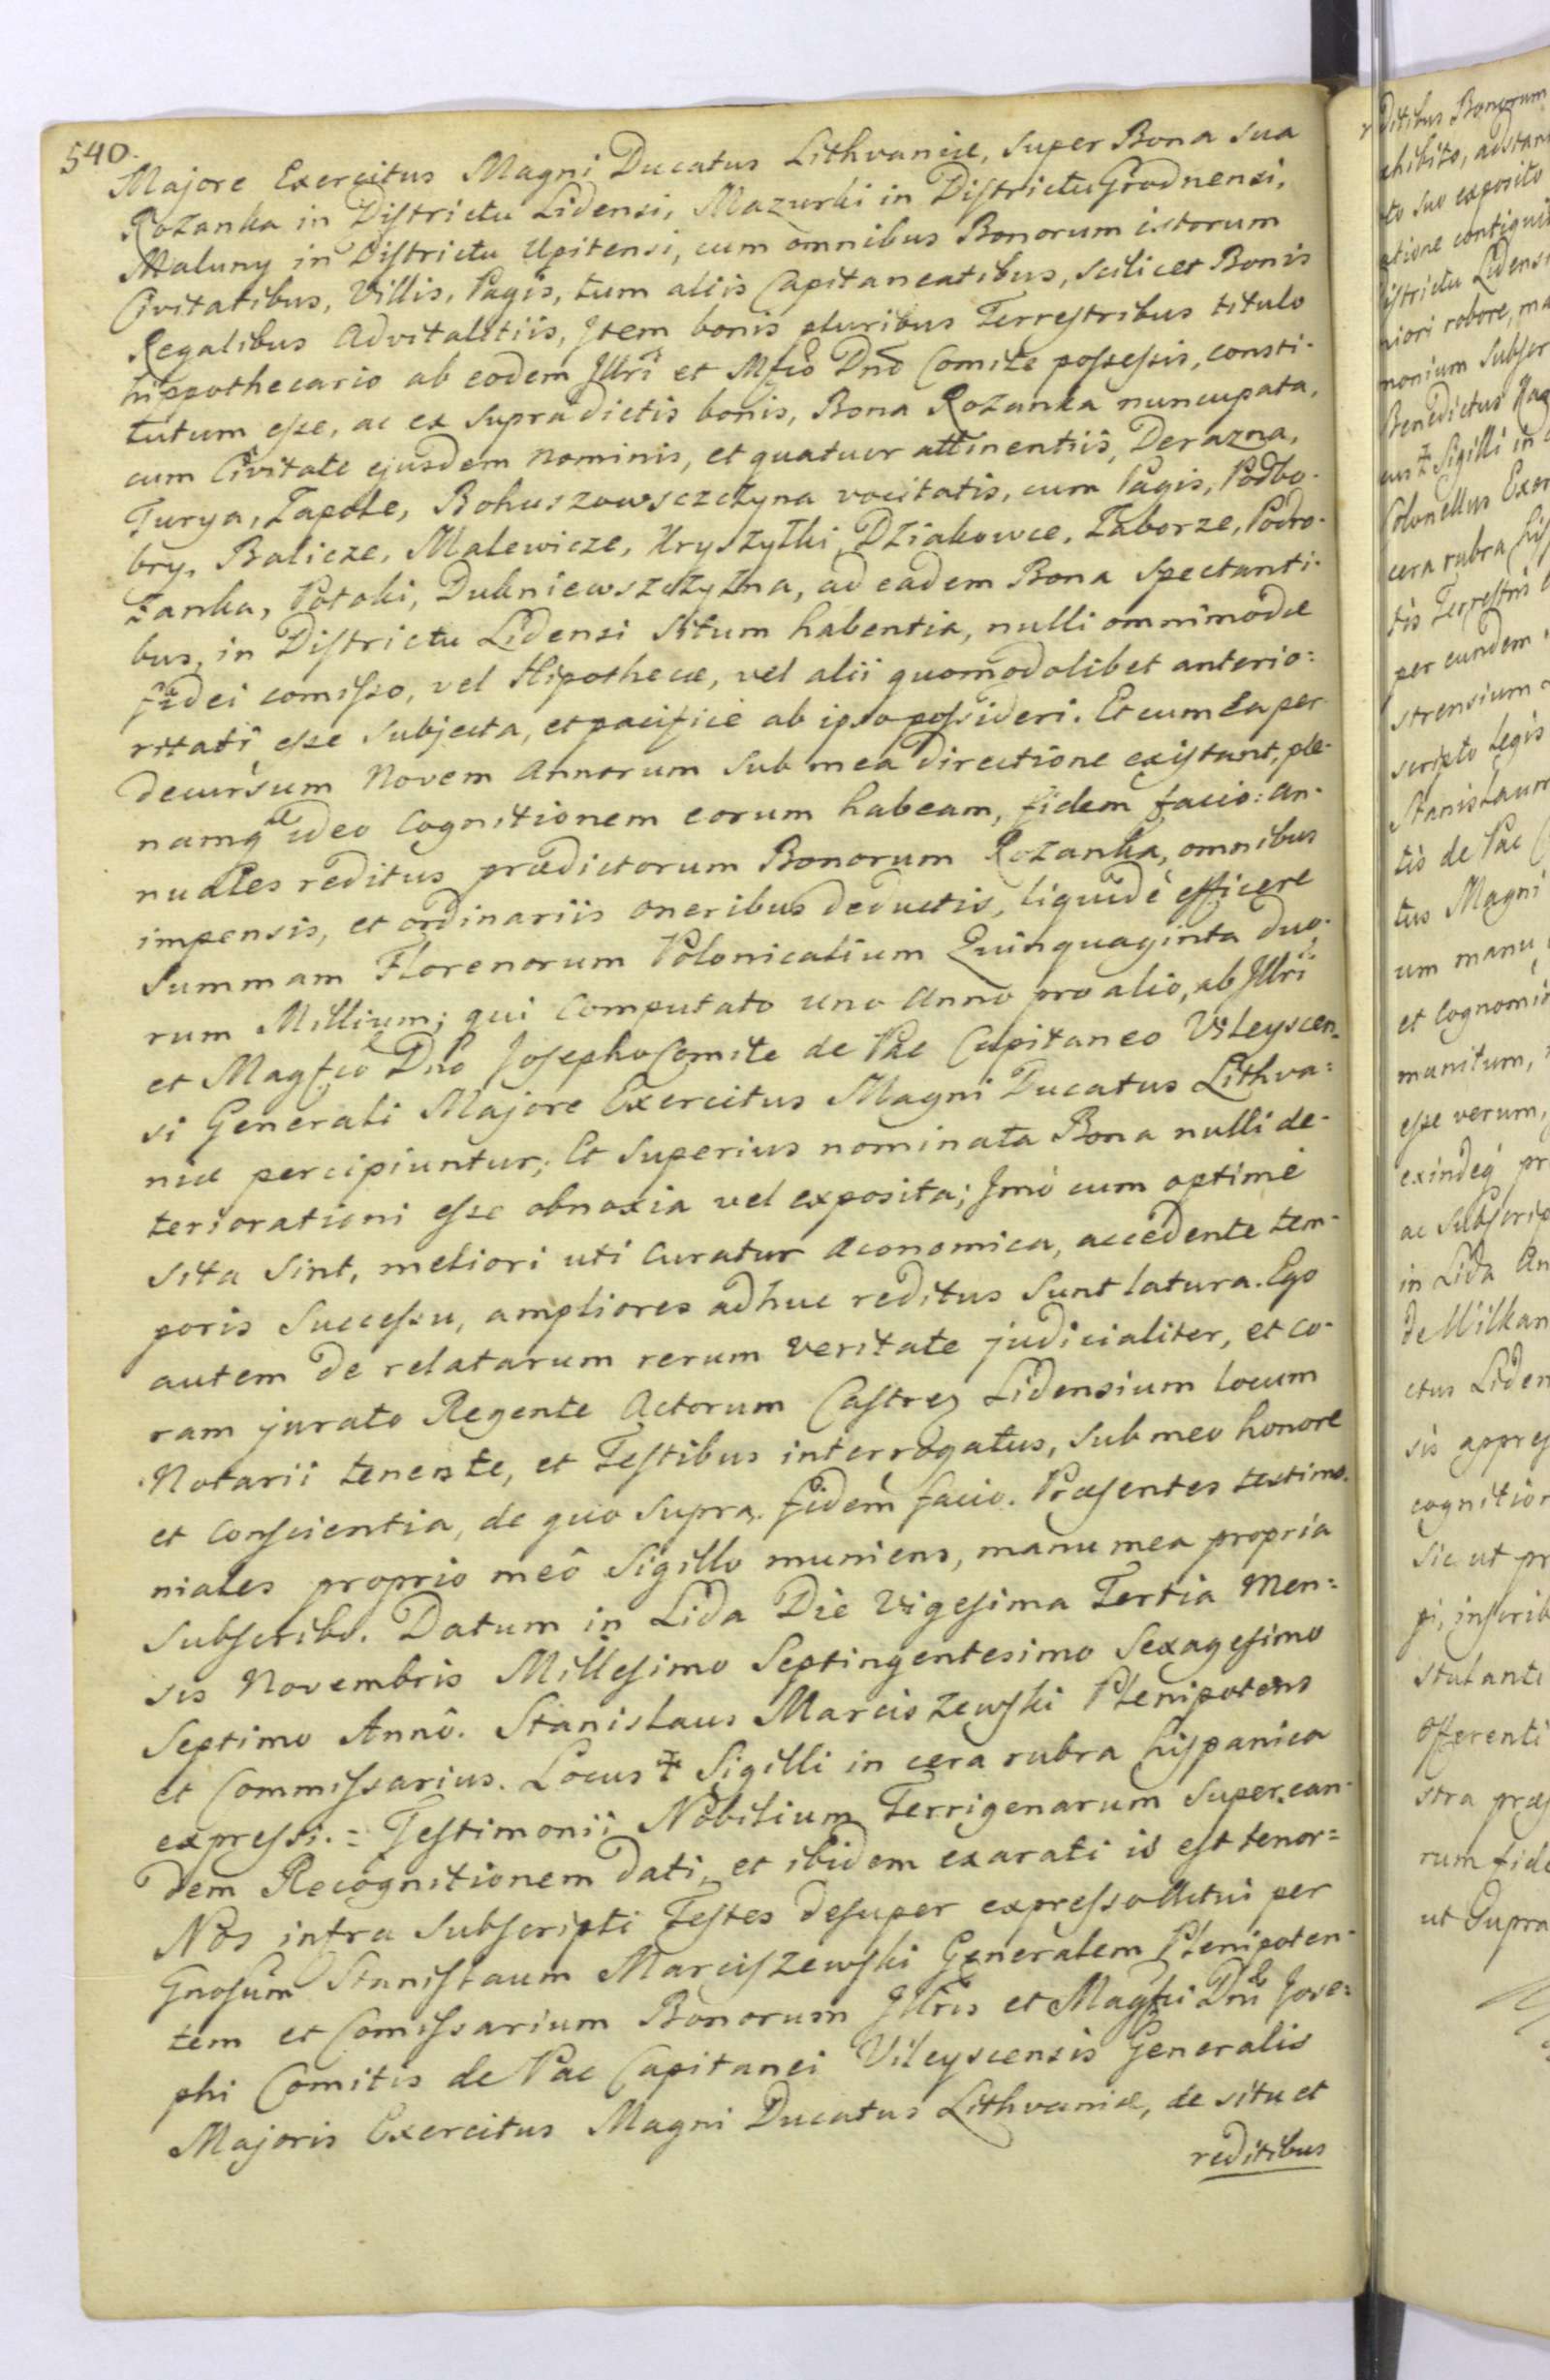 540.
Majore Exercitus Magni Ducatus Lithvaniæ, super Bona sua
Rozanka in Districtu Lidensi, Mazurki in Districtu Grodnensi,
Maluny in Districtu Upitensi, cum omnibus Bonorum istorum
Civitatibus, Villis, Pagis, tum aliis Capitaneatibus, scilicet Bonis
Regalibus Advitalitiis, Item bonis pluribus Terrestribus titulo
hippothecario ab eodem Illri et Mgfco Dno Comite possessis, consti-
tutum esse, ac ex supradictis bonis, Bona Rozanka nuncupata,
cum Civitate ejusdem nominis, et quatuor attinentiis, Derazna,
Turya, Zapole, Bohuszowszczyzna vocitatis, cum Pagis, Podbo-
bry, Balicze, Malewicze, Kryszylki, Dziakowce, Zaborze, Podro-
zanka, Potoki, Dukniewszczyzna, ad eadem Bona spectanti-
bus, in Districtu Lidensi situm habentia, nulli omnimodæ
fidei comisso, vel Hipothecæ, vel alii quomodolibet anterio=
ritati esse subjecta, et pacificè ab ipso possideri. Et cum ea per
decursum Novem Annorum sub mea directione existant, ple-
namq ideo Cognitionem eorum habeam, fidem facio: an-
nuales reditus prædictorum Bonorum Rozanka, omnibus
impensis, et ordinariis oneribus deductis, liquidè efficere
summam Florenorum Polonicalium Quinquaginta duo-
rum Millium; qui Computato uno Anno pro alio, ab Illri
et Magfco Dno Josepho Comite de Pac Capitaneo Vileyscen-
si Generali Majore Exercitus Magni Ducatus Lithva=
niæ percipiuntur; Et superius nominata Bona nulli de-
teriorationi esse obnoxia vel exposita; Imò cum optimè
sita sint, meliori uti Curatur Æconomica, accedente tem-
poris successu, ampliores adhuc reditus sunt latura. Ego
autem de relatarum rerum veritate judicialiter, et co-
ram jurato Regente Actorum Castren Lidensium locum
Notarii tenente, et Testibus interrogatus, sub meo honore
et Conscientia, de quo supra fidem facio. Præsentes testimo-
niales proprio meô Sigillo muniens, manu mea propria
subscribo. Datum in Lida Die Vigesima Tertia Men=
sis Novembris Millesimo Septingentesimo Sexagesimo
Septimo Annô. Stanislaus Marciszewski Plenipotens
et Commissarius. Locus ‡ Sigilli in cera rubra hispanica
expressi.= Testimonii Nobilium Terrigenarum super ean-
dem Recognitionem dati, et ibidem exarati is est tenor=
Nos infra subscripti Testes desuper expresso Actui per
Gnosum Stanislaum Marciszewski Generalem Plenipoten-
tem et Comissarium Bonorum Illris et Magfci Dni Jose=
phi Comitis de Pac Capitanei Vileyscensis Generalis
Majoris Exercitus Magni Ducatus Lithvaniæ, de situ et
reditibus